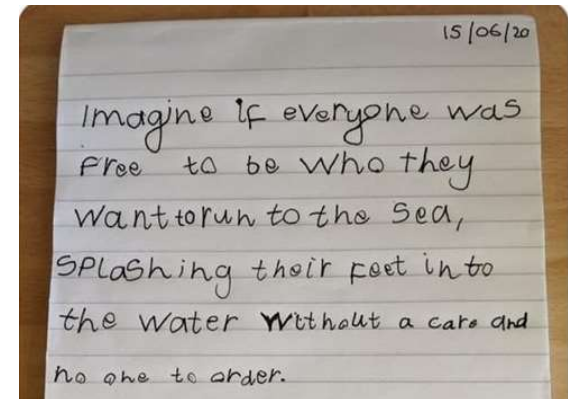 15/06/20
Imagine if everyone was
free to be who they
want to run to the sea,
SPLaShing their feet into
the water without a care and
no one to order.